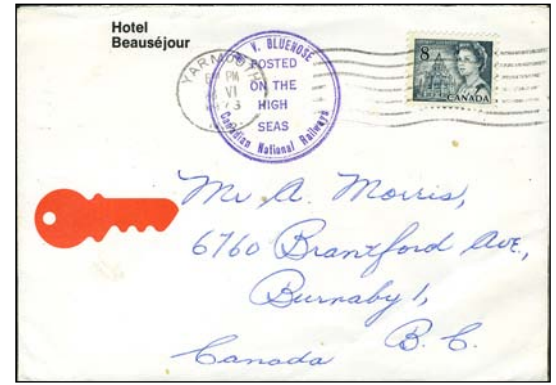 Hotel
Beauséjour
YARMOUTH
PM
VI
M. V. BLUENOSE
POSTED
ON THE
HIGH
SEAS
Canadian National Railways
8
CANADA
Mr A. Morris,
6760 Brantford Ave.,
Burnaby 1,
B. C.
Canada